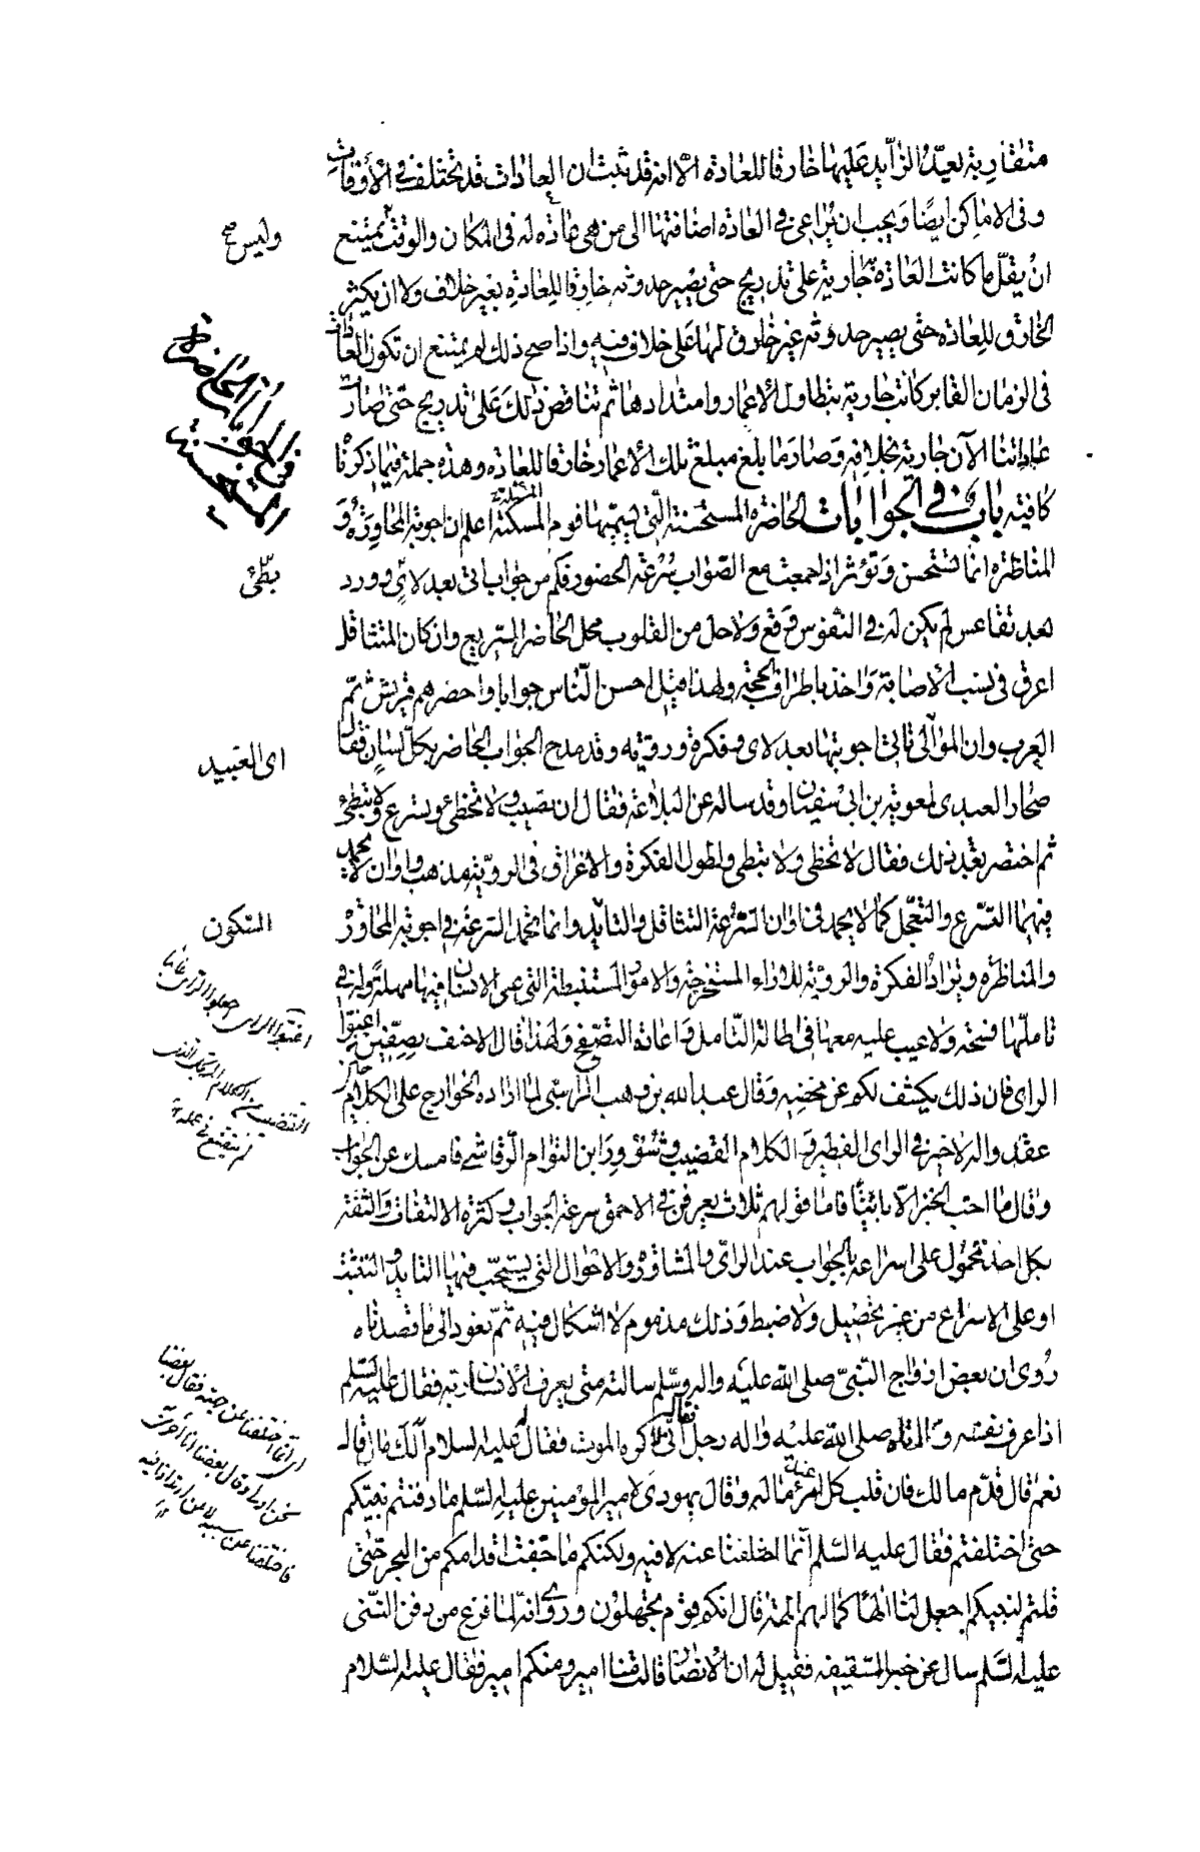 متقاربة بعيد الزايد عليها خارقا للعادة الا انه قد ثبت ان العادات قد تختلف في الأوقات
وفى الاماكن ايضا ويجب ان يراعى في العادة اضافتها الى من هى عادة له فى المكان والوقت يمتنع
وليس صح
ان يقل ما كانت العادة جارية به على تدريج حتى يصير حدوثه خارقا للعادة بغير خلاف ولا ان يكثر
الخارق للعادة حتى يصير حدوثه غير خارق لها على خلاف فيه واذا صح ذلك لم يمتنع ان تكون العادات
فى الزمان الغابر كانت جارية بتطاول الأعمار وامتدادها ثم تناقض ذلك على تدريج حتى صارت
عاداتنا الآن جارية بخلافه وصار ما بلغ مبلغ تلك الأعمار خارقا للعادة وهذه جملة فيما ذكرنا
كافية باب في الجوابات الحاضرة المستحسنة التى يسميها قوم المسكتة اعلم ان اجوبة المحاورة و
في الجوابات الحاضرة المستحسنة
المناظرة انما تستحسن وتؤثر اذا جمعت مع الصواب سرعة الحضور فكم من جواب اتى بعد لأي وورد
بطئ
بعد تقاعس لم يكن له في النفوس وقع ولا حل من القلوب محل الحاضر السريع وان كان المتثاقل
اعرق فى نسب الأصابة واخذ باطراف الحجة ولهذا قيل احسن الناس جوابا واحضرهم قريش ثم
العرب وان الموالى تاتى اجوبتها بعد لاى وفكرة وروية وقد مدح الجواب الحاضر بكل لسان فقال
اى العبيد
صحار العبدى لمعوية بن ابى سفين وقد ساله عن البلاغة فقال ان تصيب ولا تخطى وتسرع ولا تبطئ
ثم اختصر بعد ذلك فقال لا تخطى ولا تبطى ولطول الفكرة والاغراق فى الروية مذهب واوان لا يحمد
فيهما التسرع والتعجل كما لا يحمد فى اوان السرعة التثاقل والتايد وانما تحمد السرعة في اجوبة المحاورة
السكون
والمناظرة وتراد الفكرة والروية للاراء المستخرجة والامور المستنبطة التى على الانسان فيها مهلة وله في
تاملها فسحة ولا عيب عليه معها فى اطالة التامل واعادة التصفح ولهذا قال الاحنف بصفين اغبوا
الراى فان ذلك يكشف لكم عن محضه وقال عبد الله بن وهب الراسبى لما اراده الخوارج على الكلام حين
عقدوا له لا خير في الراى الفطير والكلام القضيب وشوور ابن التوام الرقاشي فامسك عن الجواب
وقال ما احب الخبز الا بائتا فاما قولهم ثلاث يعرفن في الاحمق سرعة الجواب وكثرة الالتفات والثقة
بكل احد فمحمول على اسراعه بالجواب عند الرأي والمشاورة والاحوال التى يستحب فيها التايد والتثبت
او على الاسراع من غير تحصيل ولا ضبط وذلك مذموم لا اشكال فيه ثم نعود الى ما قصدناه
روى ان بعض ازواج النبى صلى الله عليه واله وسلم سالته متى يعرف الأنسان ربه فقال عليه السلم
اذا عرف نفسه وقال له صلى الله عليه واله رجل انى اكره الموت فقال عليه السلام ألك مال قال
نعم قال قدم مالك فان قلب كل امرئ عند ماله وقال يهودى لامير المؤمنين عليه السلم ما دفنتم نبيكم
حتى اختلفتم فقال عليه السلم انما اختلفنا عنه لا فيه ولكنكم ما جفت اقدامكم من البحر حتى
قلتم لنبيكم اجعل لنا الها كما لهم الهة قال انكم قوم تجهلون وروي انه لما فرغ من دفن النبى
عليه السلم سال عن خبر السقيفة فقيل له ان الأنصار قالت منا امير ومنكم امير فقال عليه السلام